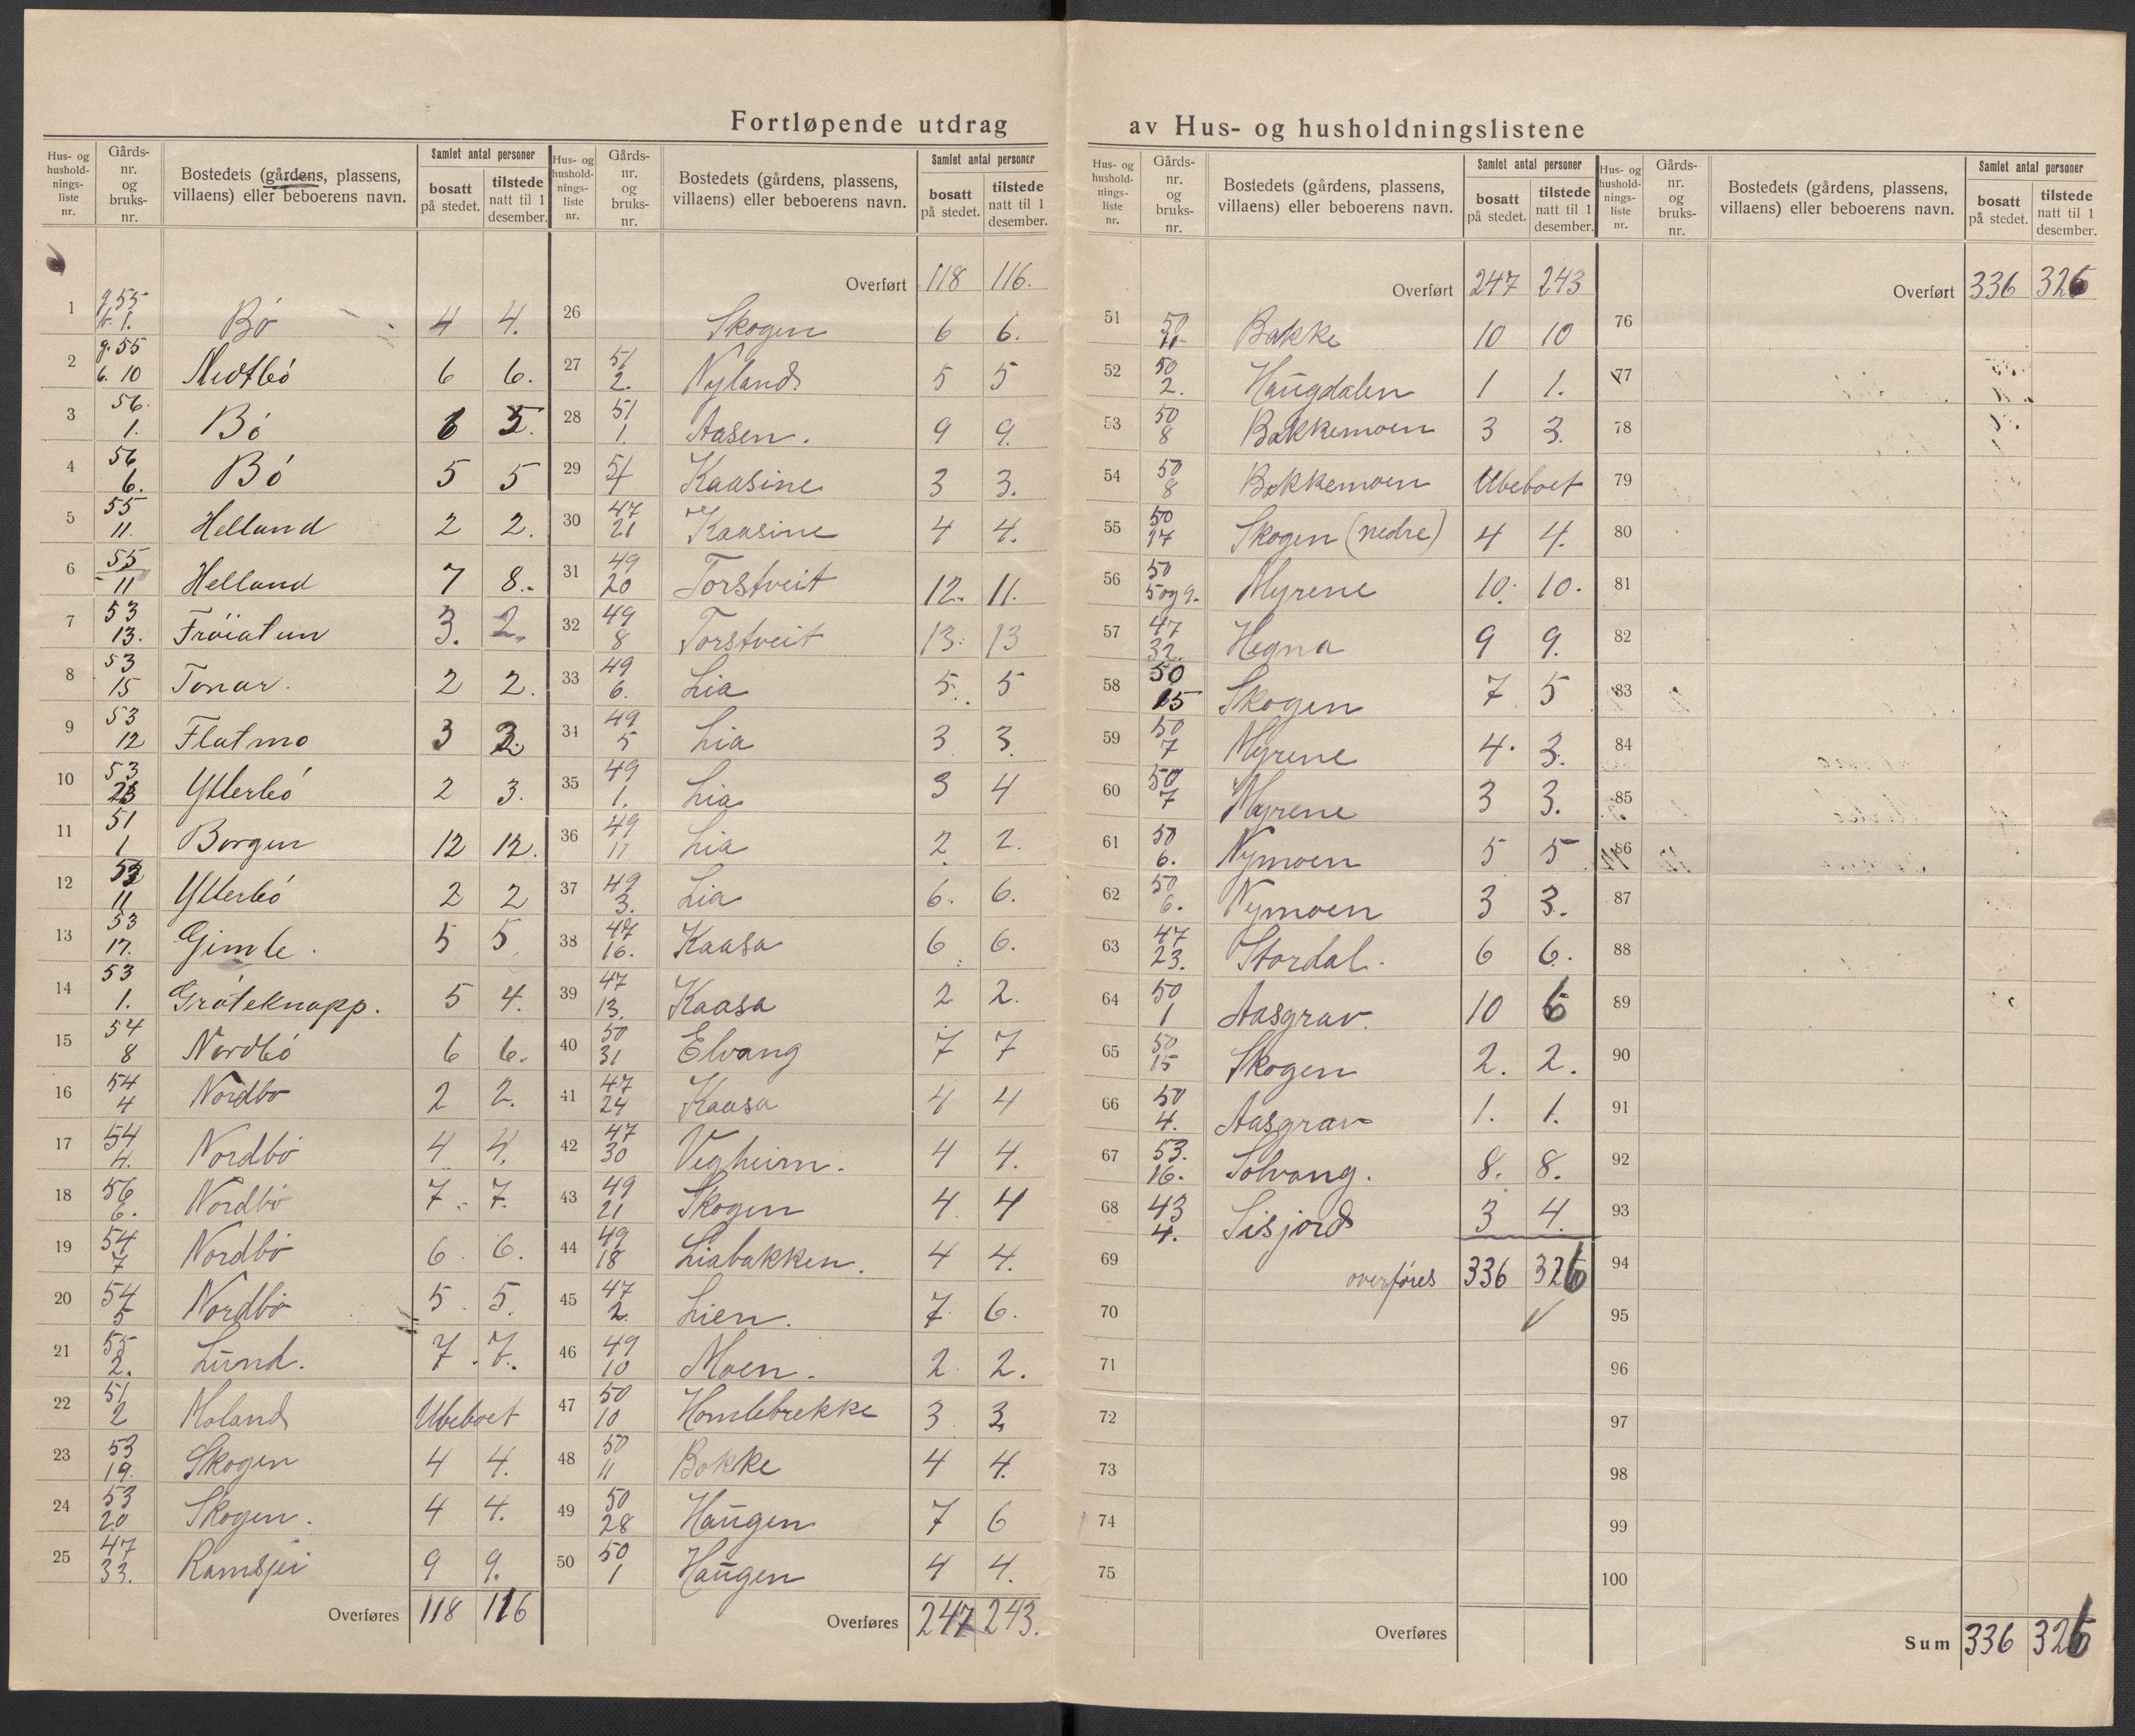 Fortløpende utdrag av Hus- og husholdningslistene
Hus- og hushold-nings-liste nr. | Gårds-nr. og bruks-nr. | Bostedets (gårdens, plassens, villaens) eller beboerens navn. | Samlet antal personer | bosatt på stedet. | tilstede natt til 1 desember.
1 g. 55 b. 1. Bö 4 4.
2 g. 55 b. 10 Midtbö 6 6.
3 56. 1. Bö 6 5.
4 56 6. Bö 5 5
5 55 11. Helland 2 2.
6 55 11 Helland 7 8.
7 53 13. Fröiatun 3. 2.
8 53 15 Tonar. 2 2.
9 53 12 Flatmo 3 2.
10 53 23 Ytterbö 2 3.
11 51 1 Borgen 12 12.
12 53 11 Ytterbö 2 2
13 53 17. Gimle. 5 5.
14 53 1. Gröteknapp. 5 4.
15 54 8 Nordbö 6 6.
16 54 4 Nordbö 2 2.
17 54 4. Nordbö 4 4.
18 56 6. Nordbö 7 7.
19 54 7 Nordbö 6 6.
20 54 5 Nordbö 5 5.
21 55 2. Lund. 7 7.
22 51 2 Moland Ubeboet
23 53 19. Skogen 4 4.
24 53 20 Skogen. 4 4.
25 47 33. Ramsjei 9 9.
Overføres 118 116
Hus- og hushold-nings-liste nr. | Gårds-nr. og bruks-nr. | Bostedets (gårdens, plassens, villaens) eller beboerens navn. | Samlet antal personer | bosatt på stedet. | tilstede natt til 1 desember.
Overført 118 116.
26 Skogen 6 6.
27 51 2. Nyland 5 5
28 51 1. Aasen. 9 9.
29 Kaasine 3 3.
30 47 21 Kaasine 4 4.
31 49 20 Torstveit 12. 11.
32 49 8 Torstveit 13. 13
33 49 6. Lia 5. 5
34 49 5 Lia 3 3.
35 49 1. Lia 3 4
36 49 11 Lia 2 2.
37 49 3. Lia 6. 6.
38 47 16. Kaasa 6 6.
39 47 13. Kaasa 2 2.
40 50 31 Elvang 7 7
41 47 24 Kaasa 4 4
42 47 30 Vegheim. 4 4.
43 49 21 Skogen 4. 4
44 49 18 Liabakken. 4 4.
45 47 2. Lien. 7. 6.
46 49 10 Moen. 2 2.
47 50 10 Homlebrekke 3. 3
48 50 11 Bakke 4 4.
49 50 28 Haugen 7 6
50 50 1 Haugen 4 4.
Overføres 247 243.
Hus- og hushold-nings-liste nr. | Gårds-nr. og bruks-nr. | Bostedets (gårdens, plassens, villaens) eller beboerens navn. | Samlet antal personer | bosatt på stedet. | tilstede natt til 1 desember.
Overført 247 243
51 50 11 Bakke 10 10
52 50 2. Haugdalen 1 1.
53 50 8 Bakkemoen 3 3.
54 50 8 Bakkemoen Ubeboet
55 50 17 Skogen (nedre) 4 4.
56 50 5 og 9. Myrene 10. 10.
57 47 32. Hegna 9 9.
58 50 15 Skogen 7 5
59 50 7 Myrene 4. 3.
60 50 7 Myrene 3 3.
61 50 6. Nymoen 5 5
62 50 6. Nymoen 3 3.
63 47 23. Stordal. 6 6.
64 50 1 Aasgrav. 10 6
65 50 15 Skogen 2. 2.
66 50 4. Aasgrav 1. 1.
67 53. 16. Solvang. 8. 8.
68 43 4. Sisjord 3 4.
69 overføres 336 326
70
71
72
73
74
75
Overføres
Hus- og hushold-nings-liste nr. | Gårds-nr. og bruks-nr. | Bostedets (gårdens, plassens, villaens) eller beboerens navn. | Samlet antal personer | bosatt på stedet. | tilstede natt til 1 desember.
Overført 336 326
76
77
78
79
80
81
82
83
84
85
86
87
88
89
90
91
92
93
94
95
96
97
98
99
100
Sum 336 326